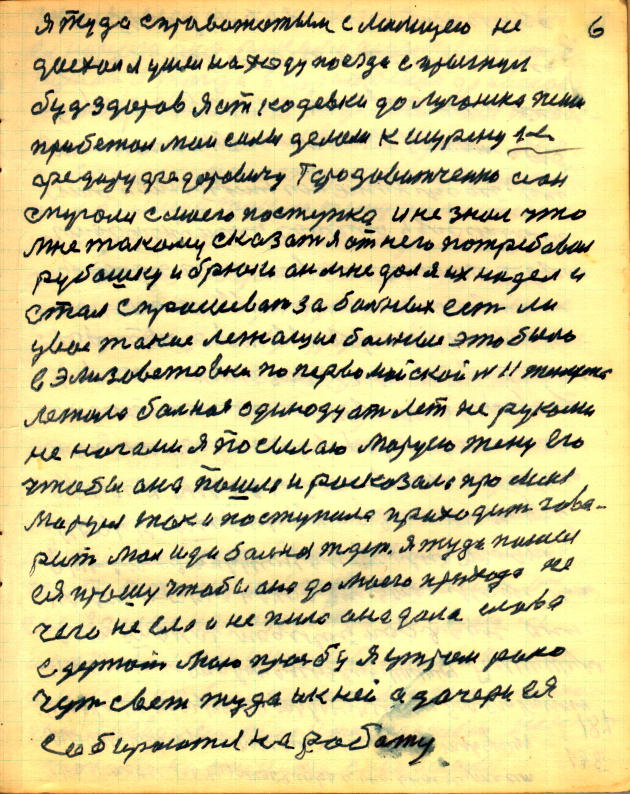 я туда справожотым с милицею не 6
доехал я ушли на ходу поезда спрыгнул
буд здоров я от кодевки до луганска пеши
прибежал мои сами делали к шурену
Федору Федоровичу Городовитченко он
спугали с моего поступка и не знал что
мне такому сказат я от него потребовал
рубашку и брюки он мне дал я их надел и
стал спрашеват за балных ест ли
у вас такие лежащие балные это было
в Элизоветовки по первомайской № 11
лежала балная одинодцат лет не руками
не ногами я посылаю Марусю жену его
чтобы она пошла и росказала про меня
Маруся так и поступила приходит гова-
рит мол иди балная ждет. я туда пошел
ея прошу чтобы она до моего прихода не
чего не ела и не пила она дала слова
сдержат мою прозбу я утром рано
чут свет туда и к ней а дочеря ея
собираютя на работу